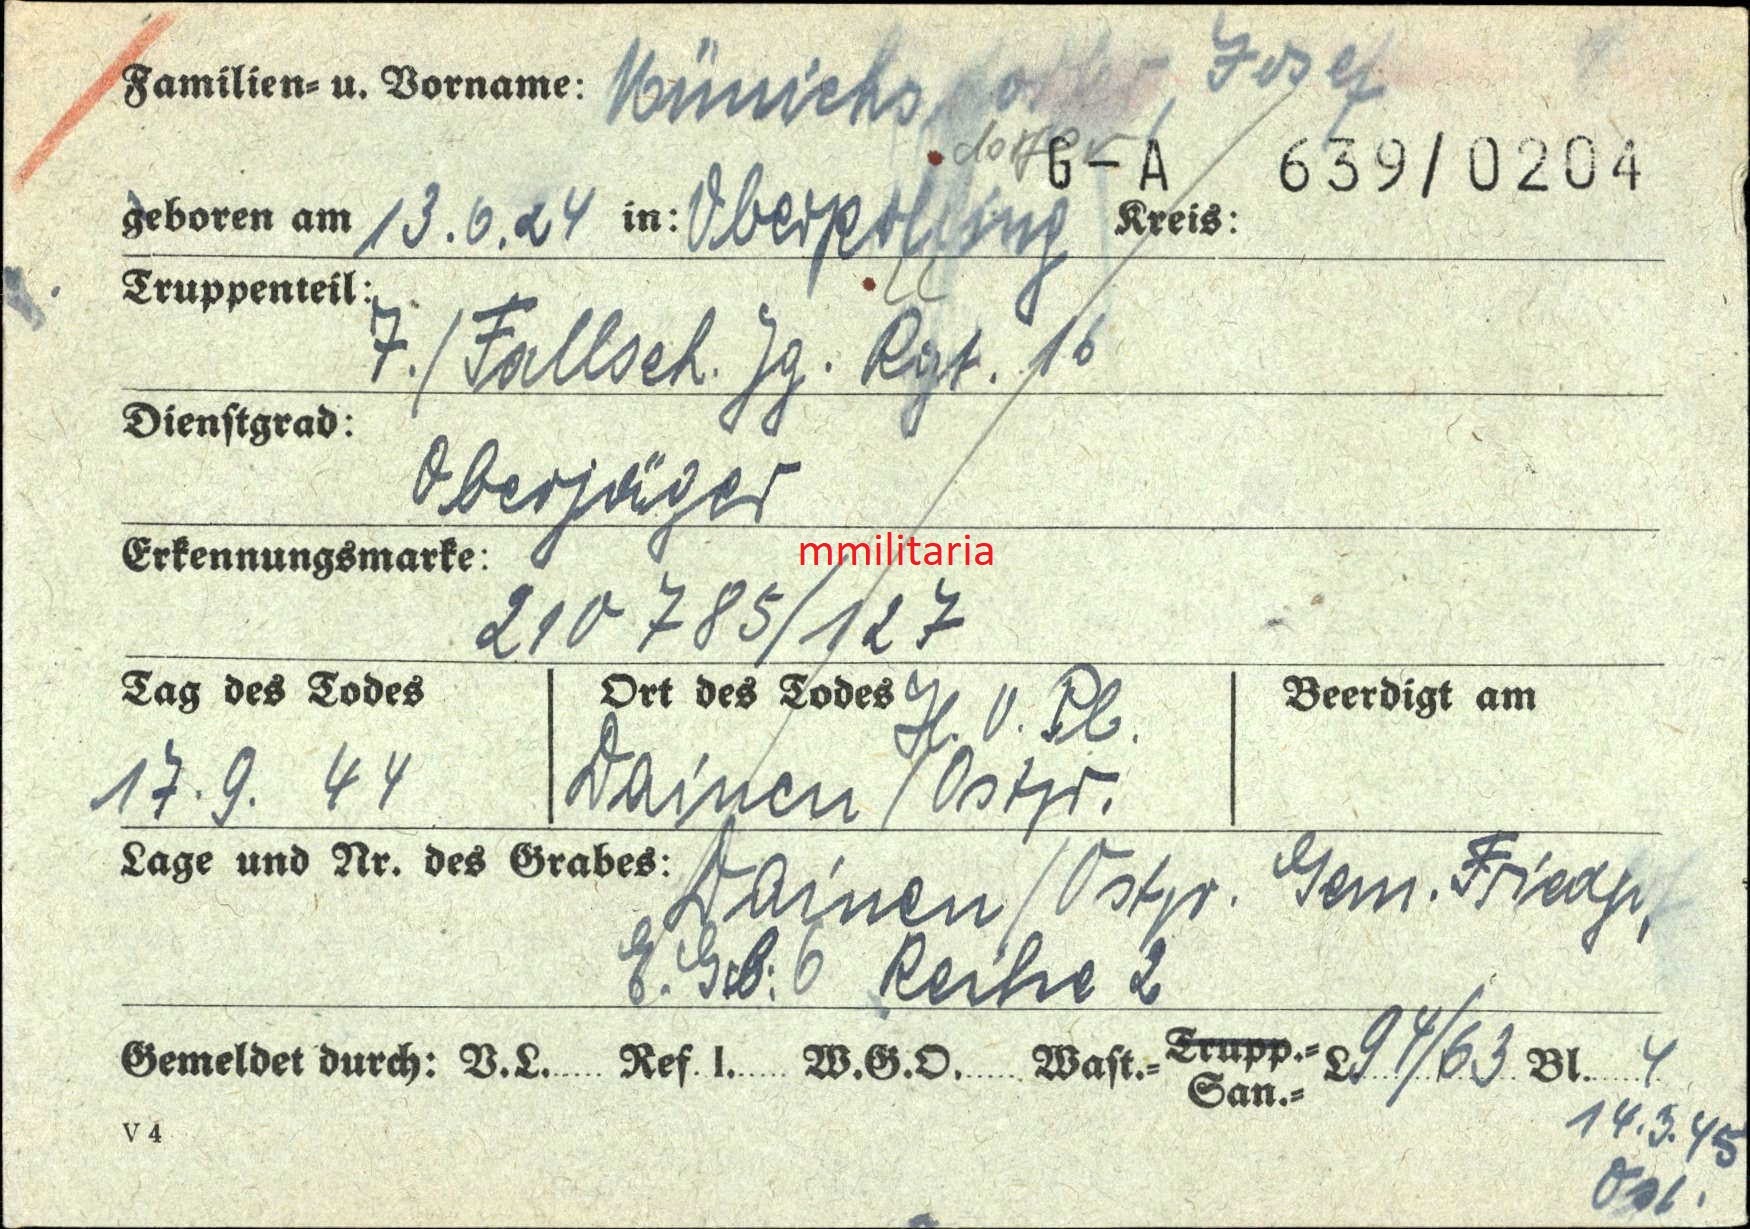 Familien- u. Vorname: Münichs , Josef
dorfer
G-A 639/0204
geboren am 13.6.24 in: Oberpolling Kreis:
ll
Truppenteil:
7./Fallsch. Jg. Rgt. 16
Dienstgrad:
Oberjäger
Erkennungsmarke:
mmilitaria
210 785/127
Tag des Todes Ort des Todes H.V.Pl. Beerdigt am
17.9. 44 Dainen/Ostpr.
Lage und Nr. des Grabes: Dainen/Ostpr. Gem. Friedhf,
E. Grb: 6 Reihe 2
Gemeldet durch: V.L..... Ref. I..... W.G.O...... Wast.- Trupp.- L 94/63 Bl. 4
San.-
14.3.45
V 4